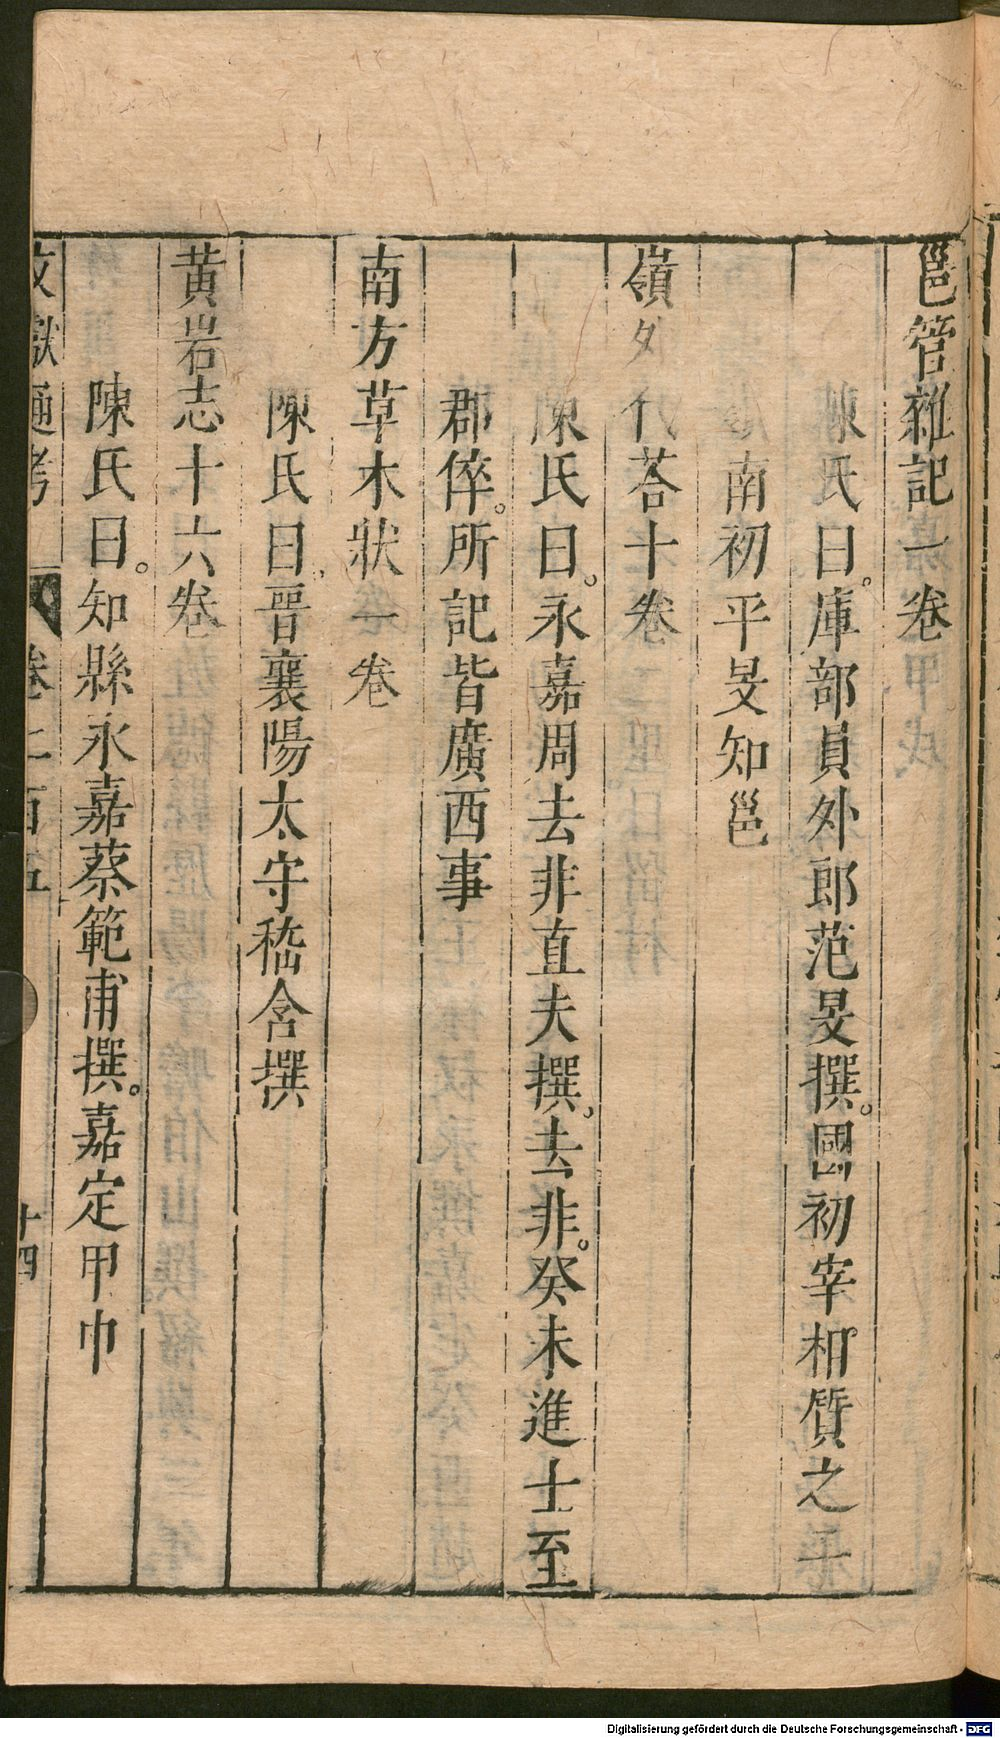 邕管雜記一卷
陳氏曰。庫部員外郎范旻撰。國初宰相質之子
南初平旻知邕
嶺外代荅十卷
陳氏曰。永嘉周去非直夫撰。去非。癸未進士至
郡倅。所記皆廣西事
南方草木狀一卷
陳氏曰晉襄陽太守嵇含撰
黃岩志十六卷
陳氏曰。知縣永嘉蔡範甫撰。嘉定甲巾
文獻通考 卷二百五 十四
Digitalisierung gefördert durch die Deutsche Forschungsgemeinschaft - DFG